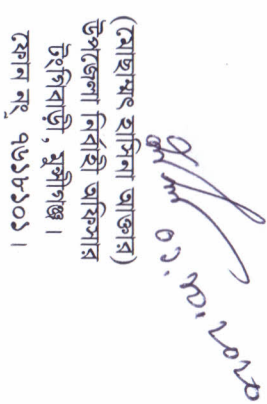 (মোছাম্মৎ হাসিনা আক্তার)
উপজেলা নির্বাহী অফিসার
টংগিবাড়ী, মুন্সীগঞ্জ।
ফোন নং ৭৬৯৮১০১।